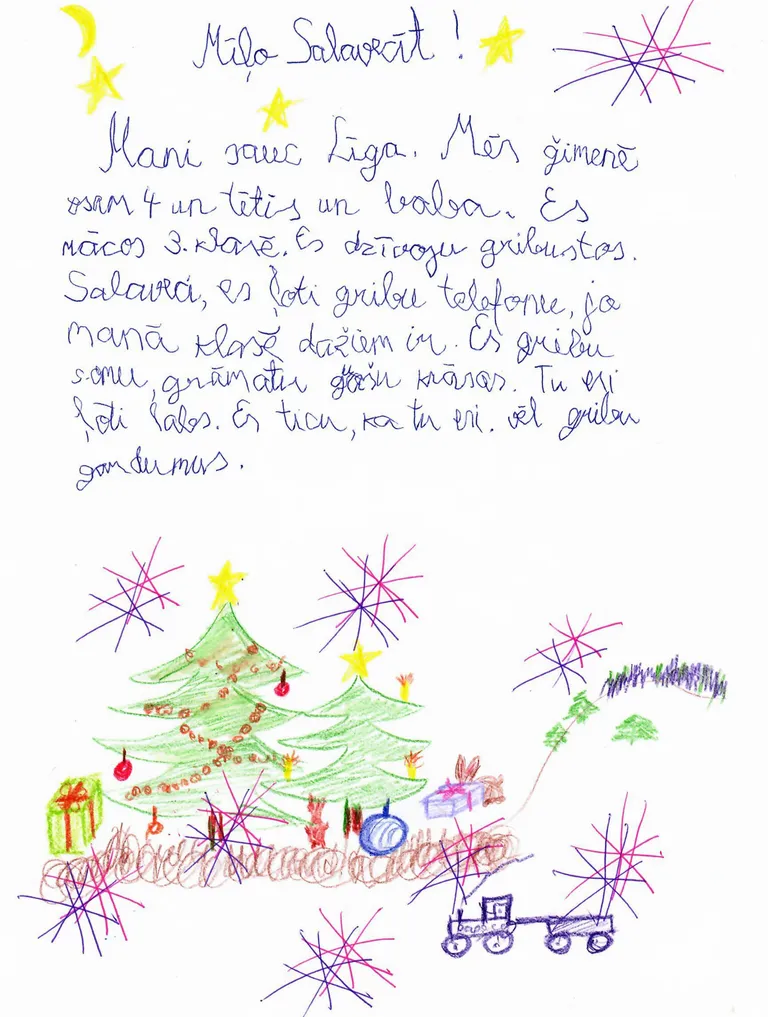 Mīļo Salavecīt!
Mani sauc Līga. Mēs ģimenē
esam 4 un tētis un baba. Es
mācos 3. klasē. Es dzīvoju gribustos.
Salaveci, es ļoti gribu telefonu, jo
manā klasē dažiem ir. Es gribu
somu, grāmatu guašu krāsas. Tu esi
ļoti labs. Es ticu, ka tu esi. vēl gribu
gardumus.